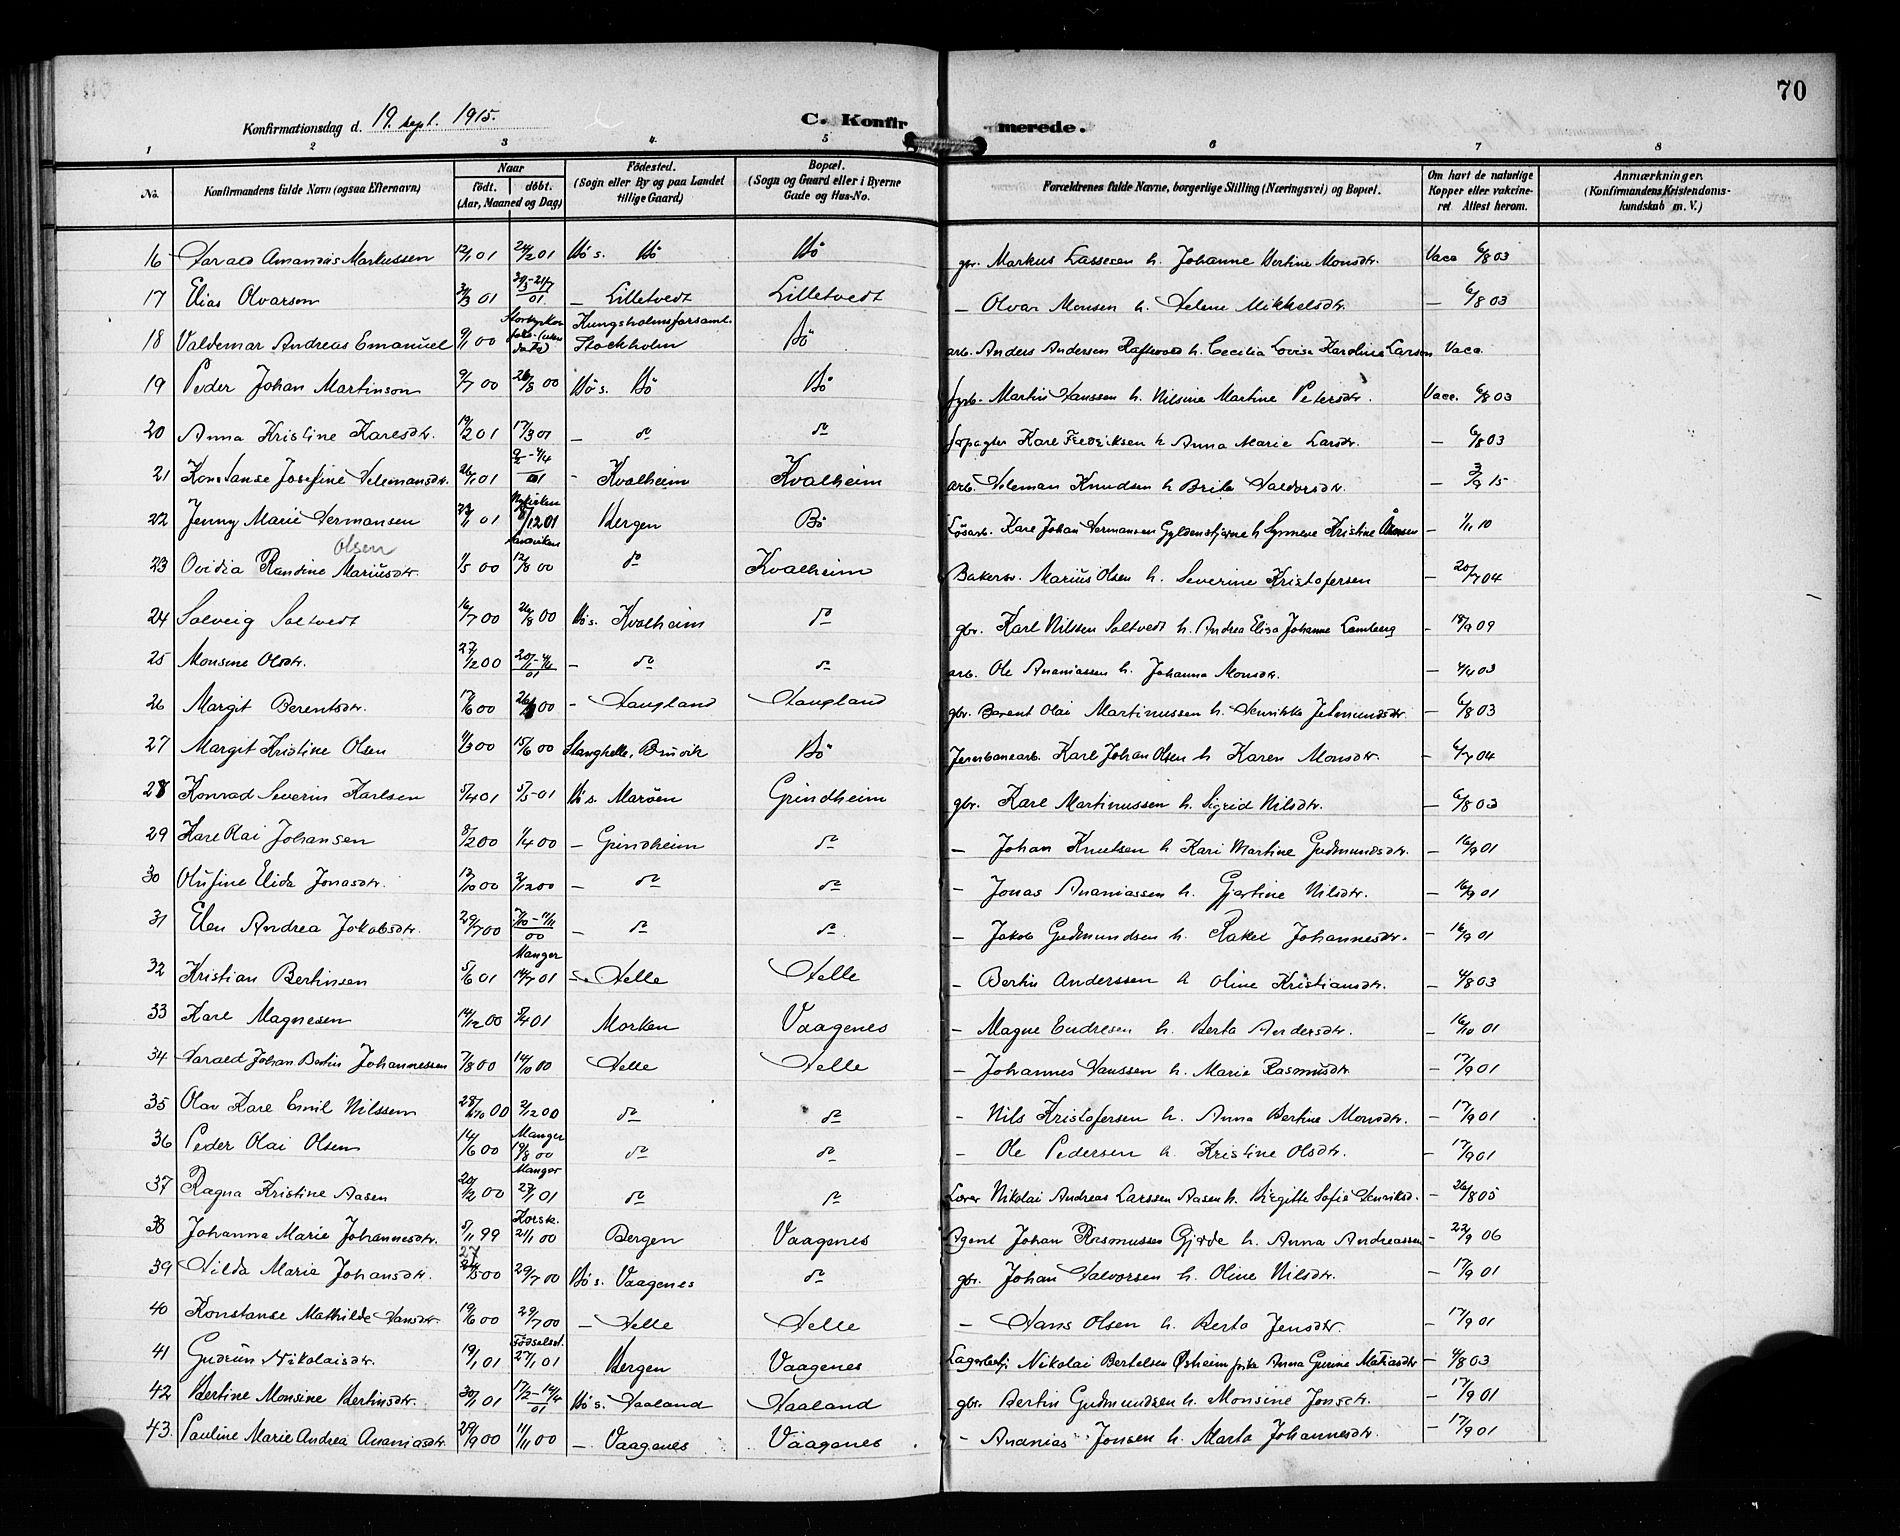 70
Konfirmationsdag d. 19. sept. 1915.
C. Konfirmerede.
1 2 3 4. 5 6 7 8
No.
Konfirmandens fulde Navn (ogsaa Efternavn)
Naar
födt. döbt.
(Aar, Maaned og Dag)
Födested.
(Sogn eller By og paa Landet
tillige Gaard)
Bopæl.
(Sogn og Gaard eller i Byerne
Gade og Hus-No.
Forældrenes fulde Navne, borgerlige Stilling (Næringsvei) og Bopæl.
Om havt de naturlige
Kopper eller vakcine-
ret Attest herom.
Anmærkninger.
(Konfirmandens Kristendoms-
kundskab m. V.)
16 Harald Amandus Markussen 12/1 01 24/2 01 Bö s. Bö Bö gbr. Markus Lassesen h. Johanne Bertine Monsdtr. Vacc 6/8 03
17 Elias Olvarson 3/3 01 01 — Lilletvedt Lilletvedt — Olvar Monsen h. Helene Mikkelsdtr. — 6/8 03
18 Valdemar Andreas Emanuel 9/11 00 Kungsholmsforsaml. Stockholm Bö arb. Anders Andersen h. Cecilia Lovise Karolina Larson Vacc.
19 Peder Johan Martinson 9/7 00 26/8 00 Bö s. Bö Bö Martin Hanssen h. Nilsine Martine Petersdtr. Vacc. 6/8 03
20 Anna Kristine Karlsdtr. 19/2 01 17/3 01 — do do forpagter Karl Fredriksen h. Anna Marie Larsdtr. — 6/8 03
21 Konstanse Josefine Helemansdtr. 26/1 01 2/2 - 4/4 01 - Kvalheim Kvalheim arb. Heleman Knudsen h. Brita Halvorsdtr. — 3/9 15
22 Jenny Marie Hermansen 23/11 01 Nykirken 8/12 01 Bergen Bö Løsarb. Karl Johan Hermansen Gyldenstjerne h. Synneve Kristine — 1/11 10
Olsen
23 Ovidia Randine Mariusdtr. 1/5 00 Sandviken 12/8 00 do Kvalheim Bakersv. Marius Olsen h. Severine Kristofersen — 20/7 04
24 Solveig Soltvedt 16/7 00 26/8 00 Bö s. Kvalheim do gbr. Karl Nilssen Soltvedt h. Andrea Elisa Johanne Lamberg - 18/9 09
25 Monsine Olsdtr. 27/12 00 01 — do do arb. Ole Ananiassen h. Johanna Monsdtr. — 4/4 03
26 Margit Berentsdtr. 17/6 00 00 - Haugland Haugland gbr. Berent Olai Martinussen h. Henrikke Jetmundsdtr. — 6/8 03
27 Margit Kristine Olsen 4/3 00 15/6 00 Stanghelle, Bruvik Bö Jernbanearb. Karl Johan Olsen h. Karen Monsdtr. — 6/7 04
28 Konrad Severin Karlsen 5/4 01 5/5 - 01 Bö s. Maröen Grindheim gbr. Karl Martinussen h. Sigrid Nilsdtr. — 6/8 03
29 Karl Olai Johansen 8/2 00 1/4 00 — Grindheim do — Johan Knutsen h. Kari Martine Gudmundsdtr. — 16/9 01
30 Olufine Elida Jonasdtr. 12/10 00 2/12 00 — do do — Jonas Ananiassen h. Gjertine Nilsdtr. — 16/9 01
31 Elen Andrea Jokobsdtr. 29/7 00 7/10 - 11/11 00 — do do. — Jakob Gudmundsen h. Rakel Johannesdtr. — 16/9 01
32 Kristian Bertinsen 5/6 01 Manger 14/7 01 — Helle Helle — Bertin Anderssen h. Oline Kristiansdtr. — 4/8 03
33 Karl Magnesen 14/12 00 8/4 01 Morken Vaagenes — Magne Endresen h. Berta Andersdtr. — 16/10 01
34 Harald Johan Bertin Johannessen 7/8 00 14/10 00 Helle Helle — Johannes Hanssen h. Marie Rasmusdtr. — 17/9 01
35 Olav Karl Emil Nilssen 28/10 00 2/12 00 do do - Nils Kristofersen h. Anna Bertine Monsdtr. — 17/9 01
36 Peder Olai Olsen 14/6 00 Manger 19/8 00 do do - Ole Pedersen h. Kristine Olsdtr. — 17/9 01
37 Ragna Kristine Aasen 20/12 00 Manger 27/1 01 do do Lærer Nikolai Andreas Larssen Aasen h. Birgitte Sofie Henriksd. — 26/8 05
38 Johanna Marie Johannesdtr. 5/11 99 Korsk. 21/1 00 Bergen Vaagenes Agent Johan Rasmussen Gjerde h. Anna Andreassen — 22/9 06
39 Hilda Marie Johansdtr. 27/5 00 29/7 00 Bö s. Vaagenes do gbr. Johan Halvorsen h. Oline Nilsdtr. — 17/9 01
40 Konstanse Mathilde Hansdtr. 19/6 00 29/7 00 — Helle Helle — Hans Olsen h. Berta Jensdtr. — 17/9 01
41 Gudrun Nikolaisdtr. 19/1 01 Födselsst. 27/1 01 Bergen Vaagenes Nikolai Bertelsen Østheim Anna Gurine Matiasdtr — 4/8 03
42 Bertine Monsine Bertinsdtr. 30/1 01 17/2 - 14/4 01 Bö s. Haaland Haaland gbr. Bertin Gudmundsen h. Monsine Jonsdtr. — 17/9 01
43. Pauline Marie Andrea Ananiasdtr. 29/9 00 11/11 00 — Vaagenes Vaagenes - Ananias Jonsen h. Marta Johannesdtr. — 17/9 01